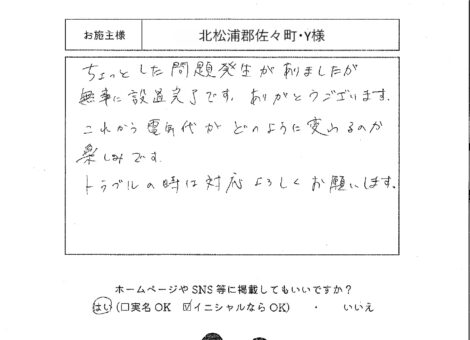 お施主様 北松浦郡佐々町・Y様
ちょっとした問題発生がありましたが
無事に設置完了です。ありがとうございます。
これから電気代がどのように変わるのか
楽しみです。
トラブルの時は対応よろしくお願いします。
ホームページやSNS等に掲載してもいいですか?
はい (☐実名OK ☑イニシャルならOK) ・ いいえ